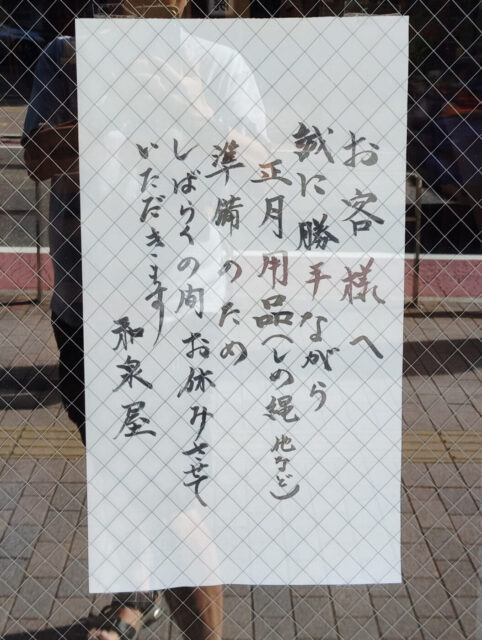 お客様へ
誠に勝手ながら
正月用品(しめ縄他など)
準備のため
しばらくの間お休みさせて
いただきます
和泉屋